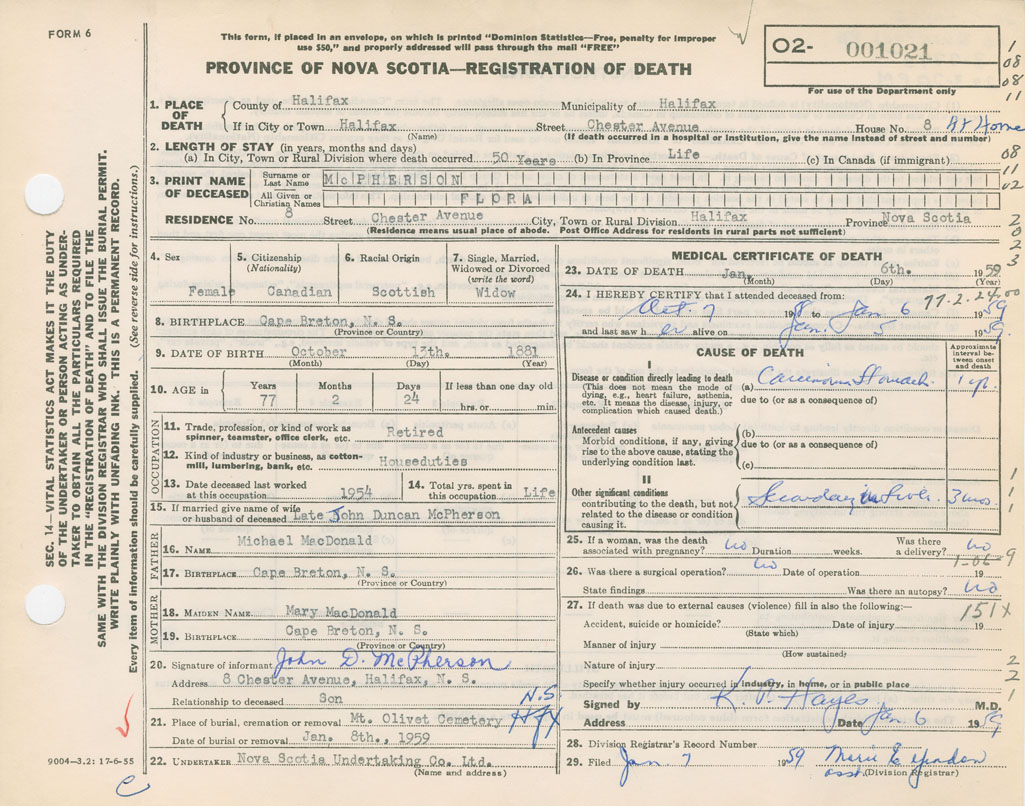 FORM 6
This form, if placed in an envelope, on which is printed "Dominion Statistics—Free, penalty for improper
use $50," and properly addressed will pass through the mail "FREE"
PROVINCE OF NOVA SCOTIA—REGISTRATION OF DEATH
02- 001021
For use of the Department only
1
08
08
11
08
11
02
2
0
2
3
1. PLACE OF DEATH
County of Halifax Municipality of Halifax
If in City or Town Halifax Street Chester Avenue House No. 8 At Home
(Name) (If death occurred in a hospital or institution, give the name instead of street and number)
2. LENGTH OF STAY (in years, months and days)
(a) In City, Town or Rural Division where death occurred 50 Years (b) In Province Life (c) In Canada (if immigrant)
3. PRINT NAME OF DECEASED
Surname or Last Name McPHERSON
All Given or Christian Names FLORA
RESIDENCE No. 8 Street Chester Avenue City, Town or Rural Division Halifax Province Nova Scotia
(Residence means usual place of abode. Post Office Address for residents in rural parts not sufficient)
4. Sex Female
5. Citizenship (Nationality) Canadian
6. Racial Origin Scottish
7. Single, Married, Widowed or Divorced (write the word) Widow
8. BIRTHPLACE Cape Breton, N. S.
(Province or Country)
9. DATE OF BIRTH October 13th. 1881
(Month) (Day) (Year)
10. AGE in Years 77 Months 2 Days 24 If less than one day old hrs. or min.
OCCUPATION
11. Trade, profession, or kind of work as spinner, teamster, office clerk, etc. Retired
12. Kind of industry or business, as cotton-mill, lumbering, bank, etc. Houseduties
13. Date deceased last worked at this occupation 1954
14. Total yrs. spent in this occupation Life
15. If married give name of wife or husband of deceased Late John Duncan McPherson
FATHER
16. NAME Michael MacDonald
17. BIRTHPLACE Cape Breton, N. S.
(Province or Country)
MOTHER
18. MAIDEN NAME Mary MacDonald
19. BIRTHPLACE Cape Breton, N. S.
(Province or Country)
20. Signature of informant John D. McPherson
Address 8 Chester Avenue, Halifax, N. S.
Relationship to deceased Son
N.S.
21. Place of burial, cremation or removal Mt. Olivet Cemetery Hfx
Date of burial or removal Jan. 8th., 1959
22. UNDERTAKER Nova Scotia Undertaking Co. Ltd.
(Name and address)
MEDICAL CERTIFICATE OF DEATH
23. DATE OF DEATH Jan. 6th. 1959
(Month) (Day) (Year)
77-2-24-00
24. I HEREBY CERTIFY that I attended deceased from:
Oct. 7 1958 to Jan 6 1959
and last saw her alive on Jan. 5 1959.
CAUSE OF DEATH
Approximate interval between onset and death
I
Disease or condition directly leading to death
(This does not mean the mode of dying, e.g., heart failure, asthenia, etc. It means the disease, injury, or complication which caused death.)
(a) Carcinoma Stomach. 1 yr.
due to (or as a consequence of)
Antecedent causes
Morbid conditions, if any, giving rise to the above cause, stating the underlying condition last.
(b)
due to (or as a consequence of)
(c)
II
Other significant conditions
contributing to the death, but not related to the disease or condition causing it.
Secondary in Liver. 3 mos
1
1
1
25. If a woman, was the death associated with pregnancy? no Duration weeks. Was there a delivery? no
1-06-9
26. Was there a surgical operation? no Date of operation 19
State findings Was there an autopsy? no
27. If death was due to external causes (violence) fill in also the following:—
151X
Accident, suicide or homicide? Date of injury 19
(State which)
Manner of injury
(How sustained)
Nature of injury
Specify whether injury occurred in industry, in home, or in public place
2
2
1
Signed by K. P. Hayes M.D.
Address Date Jan 6 1959
28. Division Registrar's Record Number
29. Filed Jan 7 1959 Marie E
asst. (Division Registrar)
SEC. 14—VITAL STATISTICS ACT MAKES IT THE DUTY
OF THE UNDERTAKER OR PERSON ACTING AS UNDER-
TAKER TO OBTAIN ALL THE PARTICULARS REQUIRED
IN THE "REGISTRATION OF DEATH" AND TO FILE THE
SAME WITH THE DIVISION REGISTRAR WHO SHALL ISSUE THE BURIAL PERMIT.
WRITE PLAINLY WITH UNFADING INK. THIS IS A PERMANENT RECORD.
Every item of information should be carefully supplied. (See reverse side for instructions.)
9004—3.2: 17-6-55
C